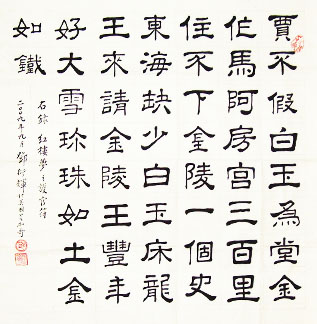 賈不假白玉爲堂金
作馬阿房宮三百里
住不下金陵一個史
東海缺少白玉床龍
王來請金陵王豐年
好大雪珍珠如土金
如鐵
右錄紅樓夢之護官符
二〇〇九年九月鄧